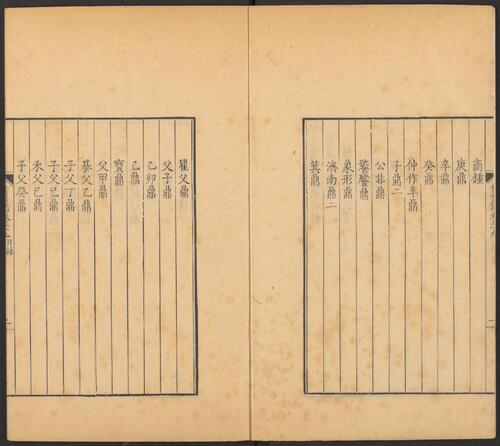 商鍾
庚鼎
辛鼎
癸鼎
仲作辛鼎
子鼎二
公非鼎
饕餮鼎
象形鼎
濟南鼎二
箕鼎
瞿父鼎
父子鼎
乙卯鼎
乙鼎
寶鼎
父甲鼎
綦父乙鼎
子父丁鼎
子父己鼎
禾父己鼎
子父癸鼎
目錄